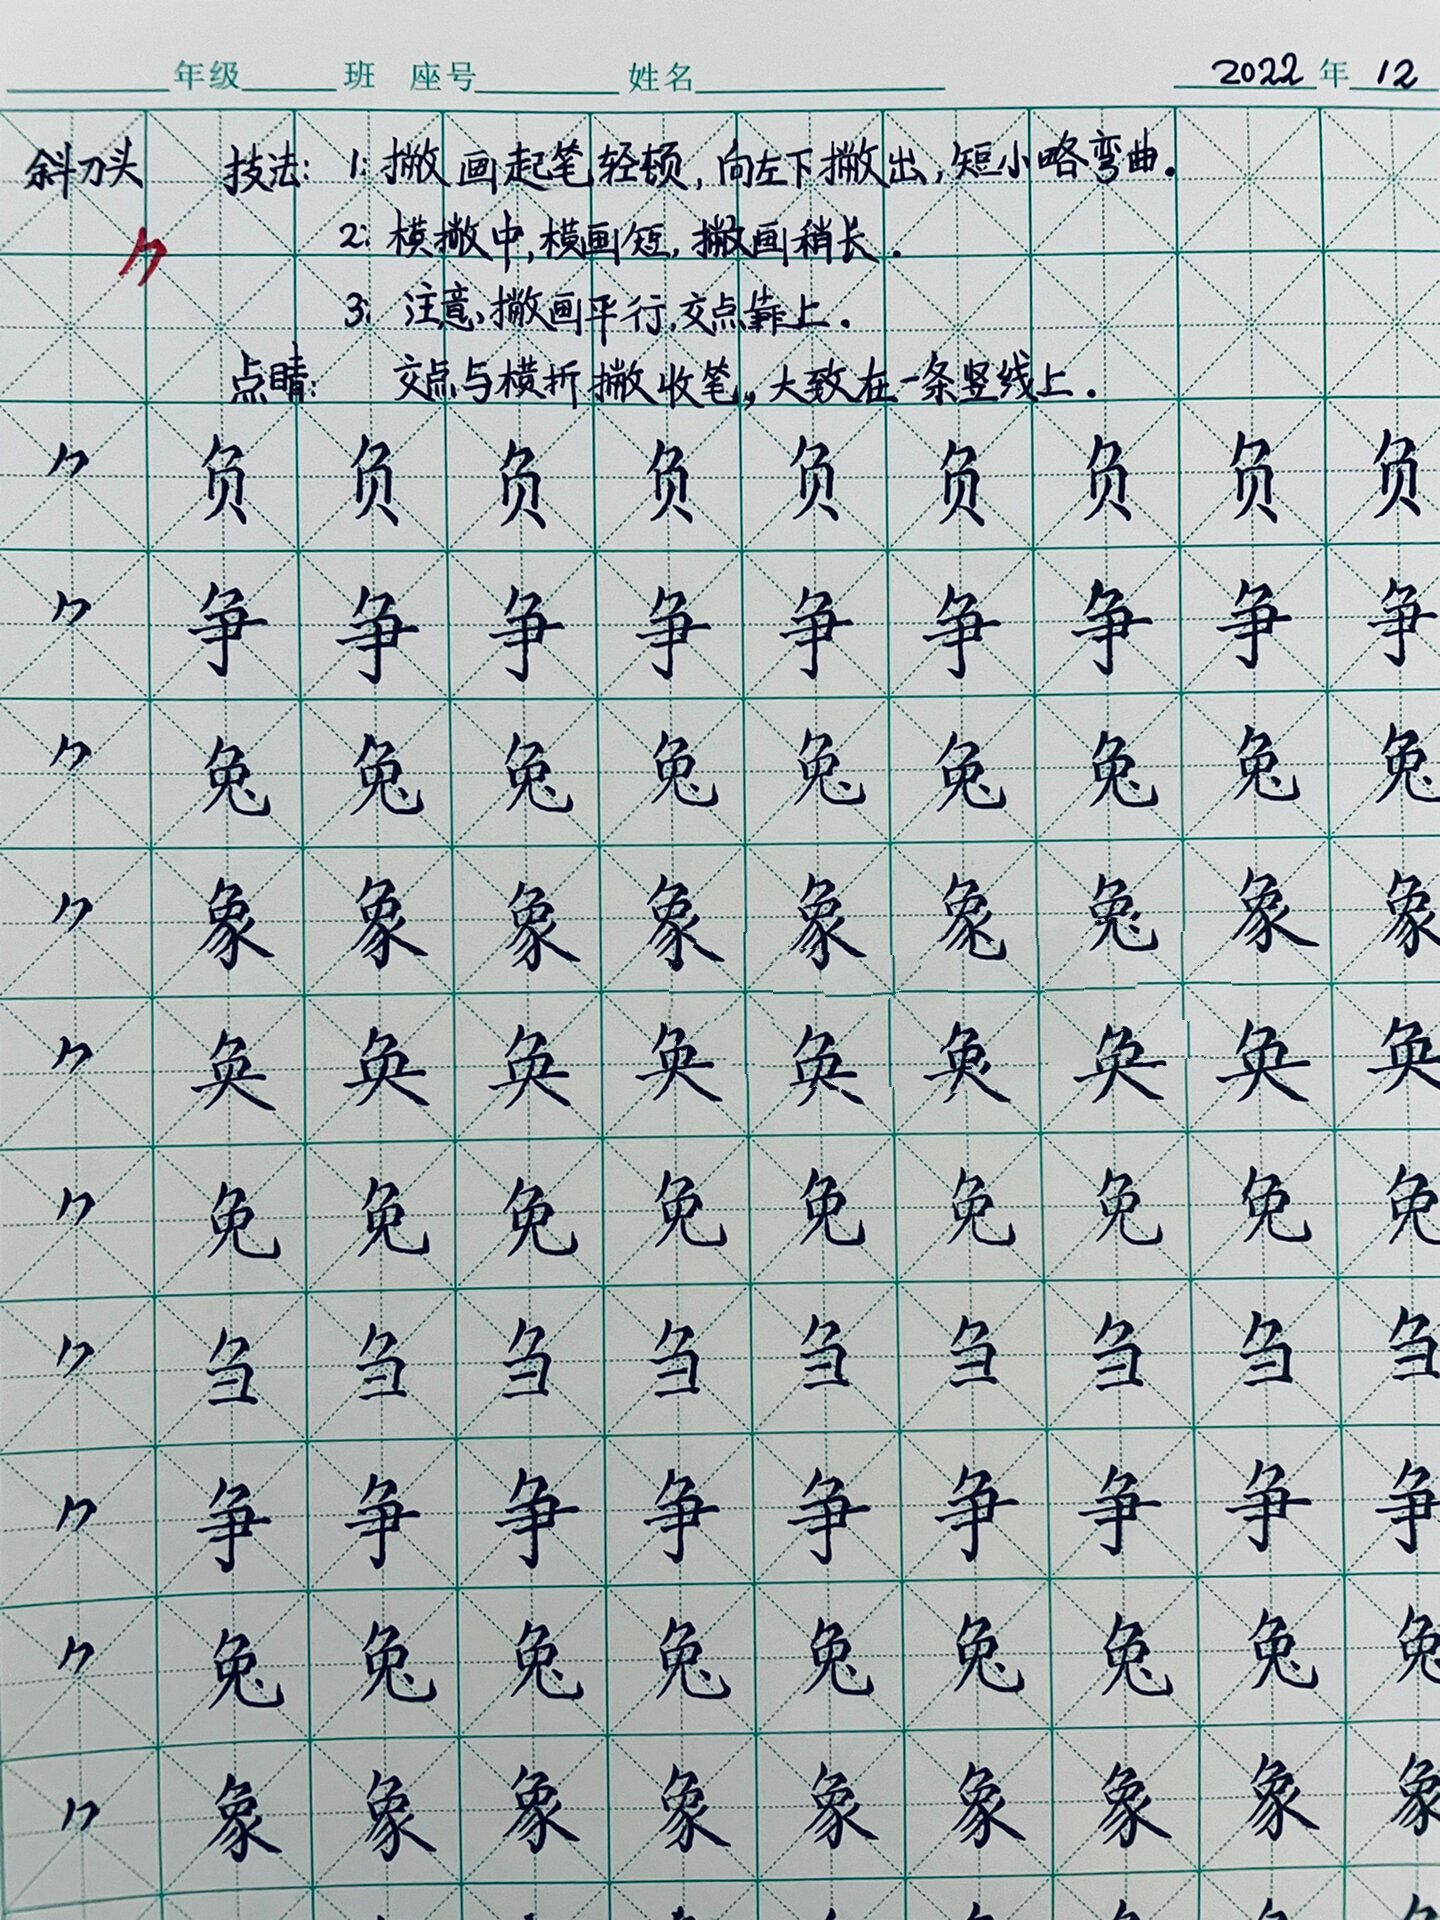 年级 班 座号 姓名 2022 年 12
斜刀头 技法: 1: 撇画起笔轻顿,向左下撇出,短小略弯曲。
2: 横撇中,横画短,撇画稍长.
⺈
3: 注意、撇画平行,交点靠上.
点睛: 交点与横折撇收笔,大致在一条竖线上.
⺈ 负 负 负 负 负 负 负 负 负
⺈ 争 争 争 争 争 争 争 争 争
⺈ 兔 兔 兔 兔 兔 兔 兔 兔 兔
⺈ 象 象 象 象 象 象 象
⺈ 奂 奂 奂 奂 奂 奂 奂 奂
⺈ 免 免 免 免 免 免 免 免 免
⺈ 刍 刍 刍 刍 刍 刍 刍 刍 刍
⺈ 争 争 争 争 争 争 争 争 争
⺈ 兔 兔 兔 兔 兔 兔 兔 兔 兔
⺈ 象 象 象 象 象 象 象 象 象